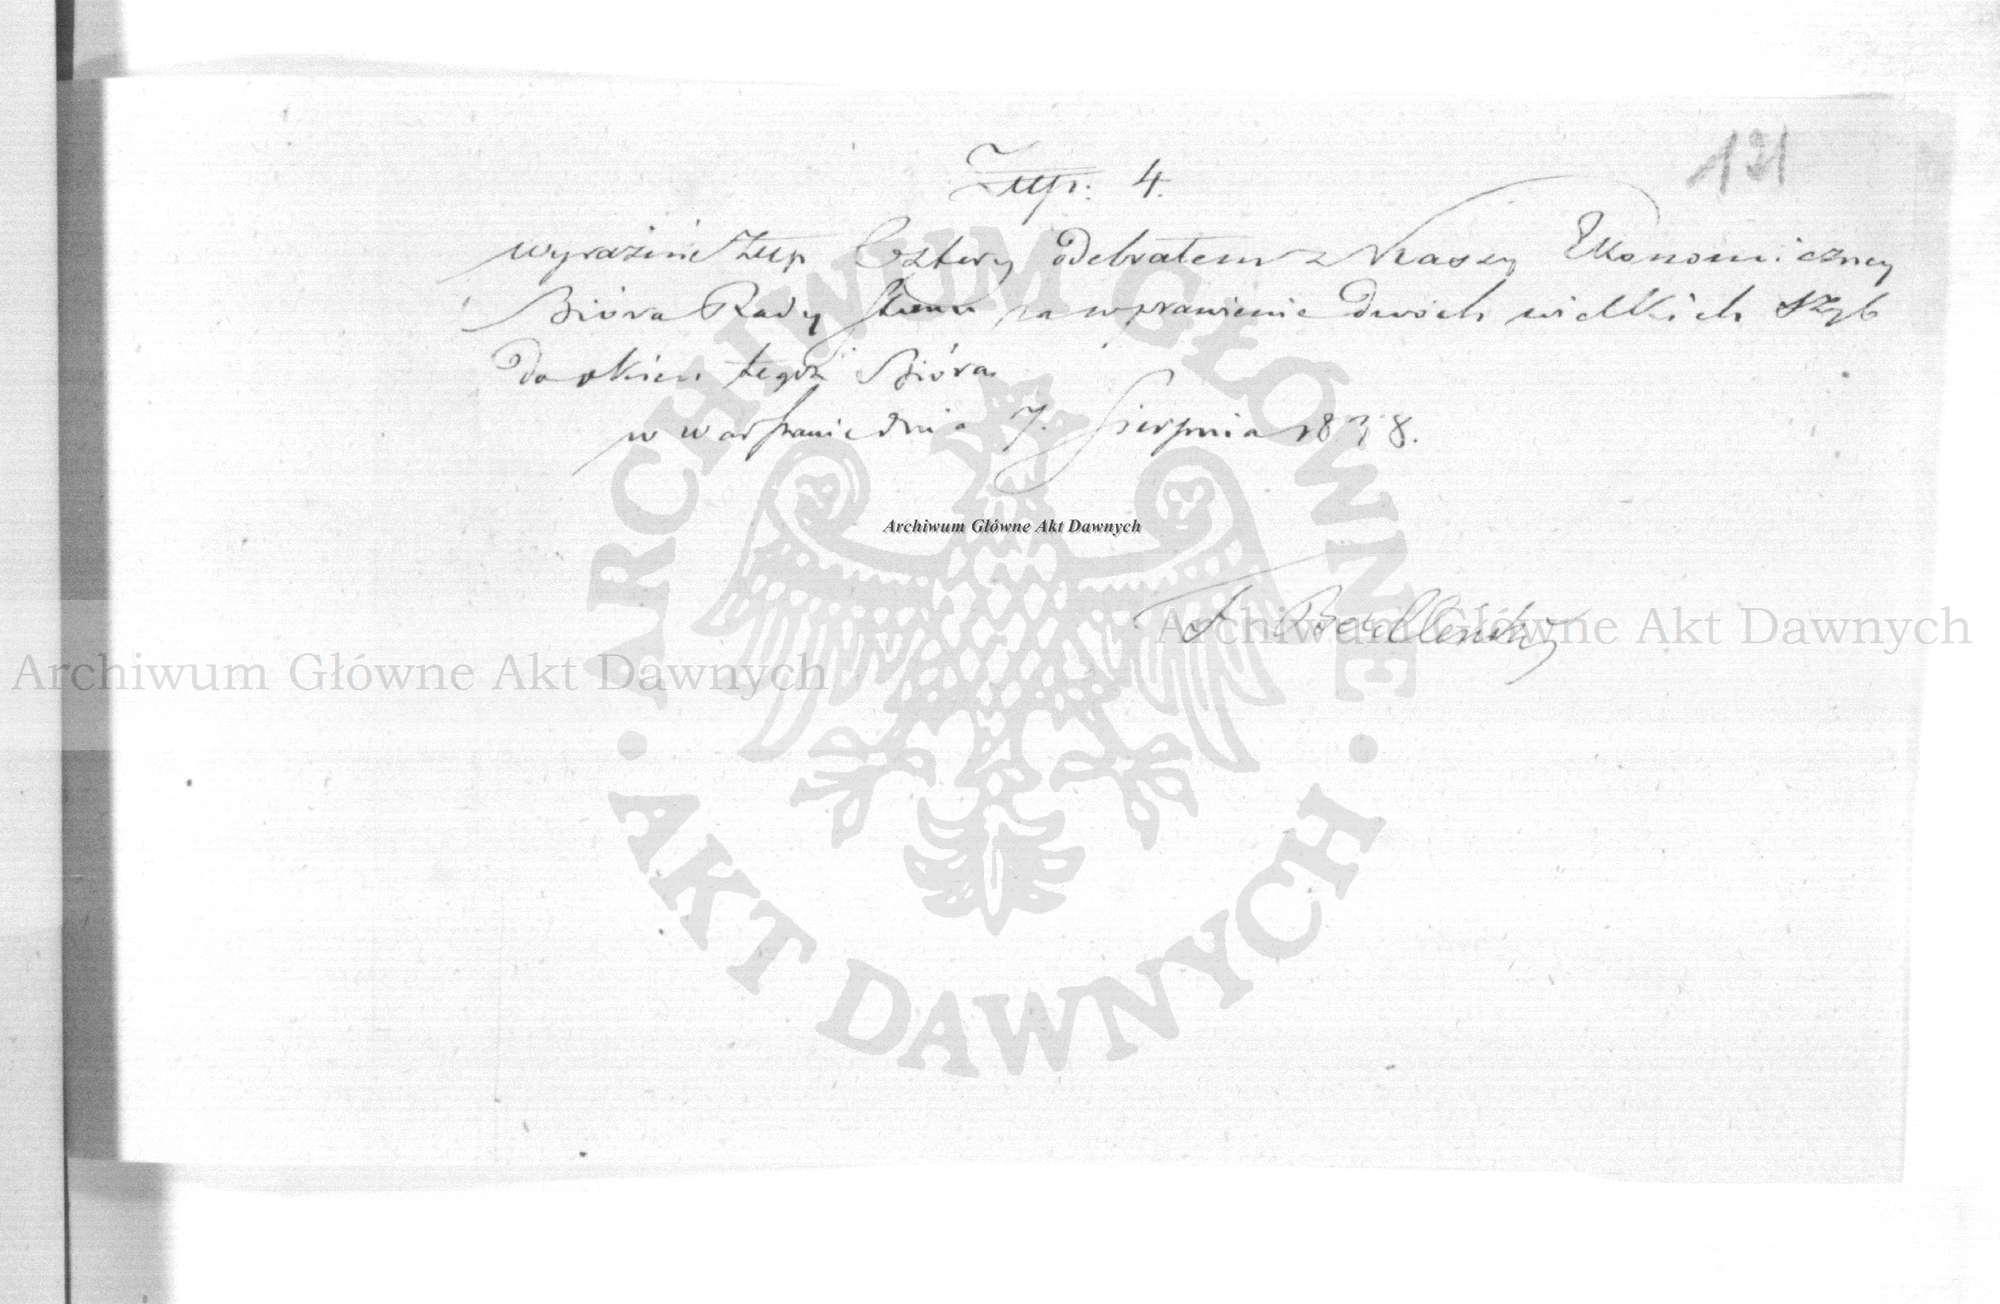 121
Złtp: 4.
wyraźnie Złtp Cztery odebrałem z Kassy Ekonomiczney
Bióra Rady Stanu za wprawienie dwóch wielkich szyb
do okien tegoż Bióra
w Warszawie dnia 7. Sierpnia 1838.
Archiwum Główne Akt Dawnych
F
Archiwum Główne Akt Dawnych
Archiwum Główne Akt Dawnych
ARCHIWUM GŁÓWNE
AKT DAWNYCH